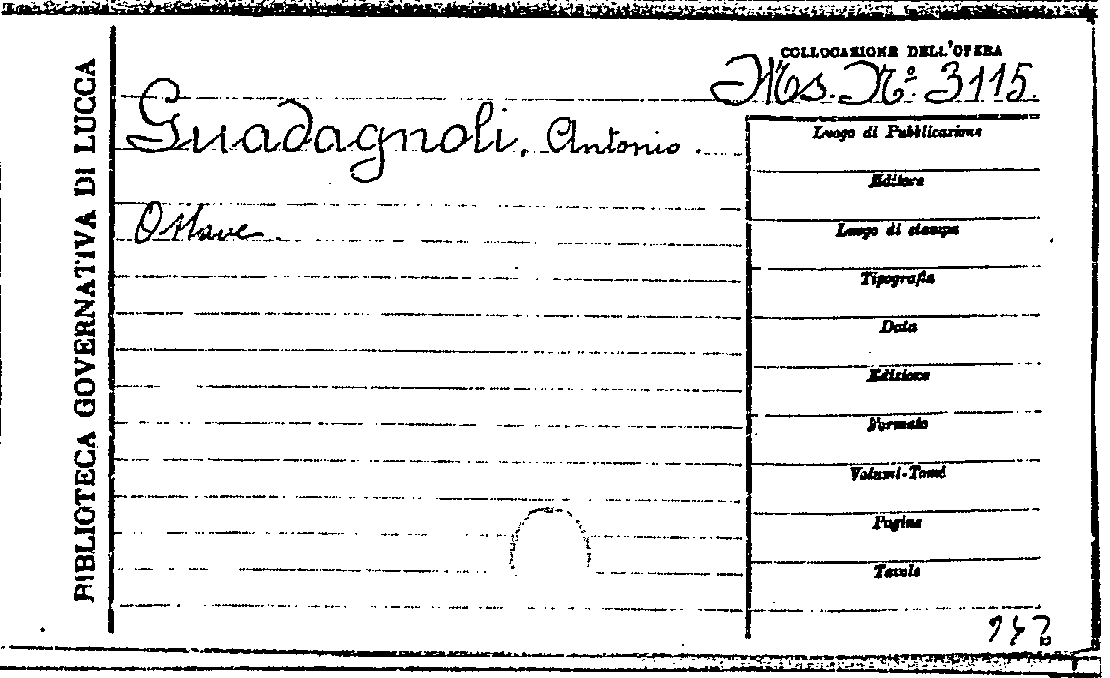 BIBLIOTECA GOVERNATIVA DI LUCCA
COLLOCAZIONE DELL'OPERA
Ms. Nº. 3115.
Guadagnoli, Antonio.
Ottave.
Luogo di Pubblicazione
Editore
Luogo di stampa
Tipografia
Data
Edizione
Formato
Volumi-Tomi
Pagine
Tavole